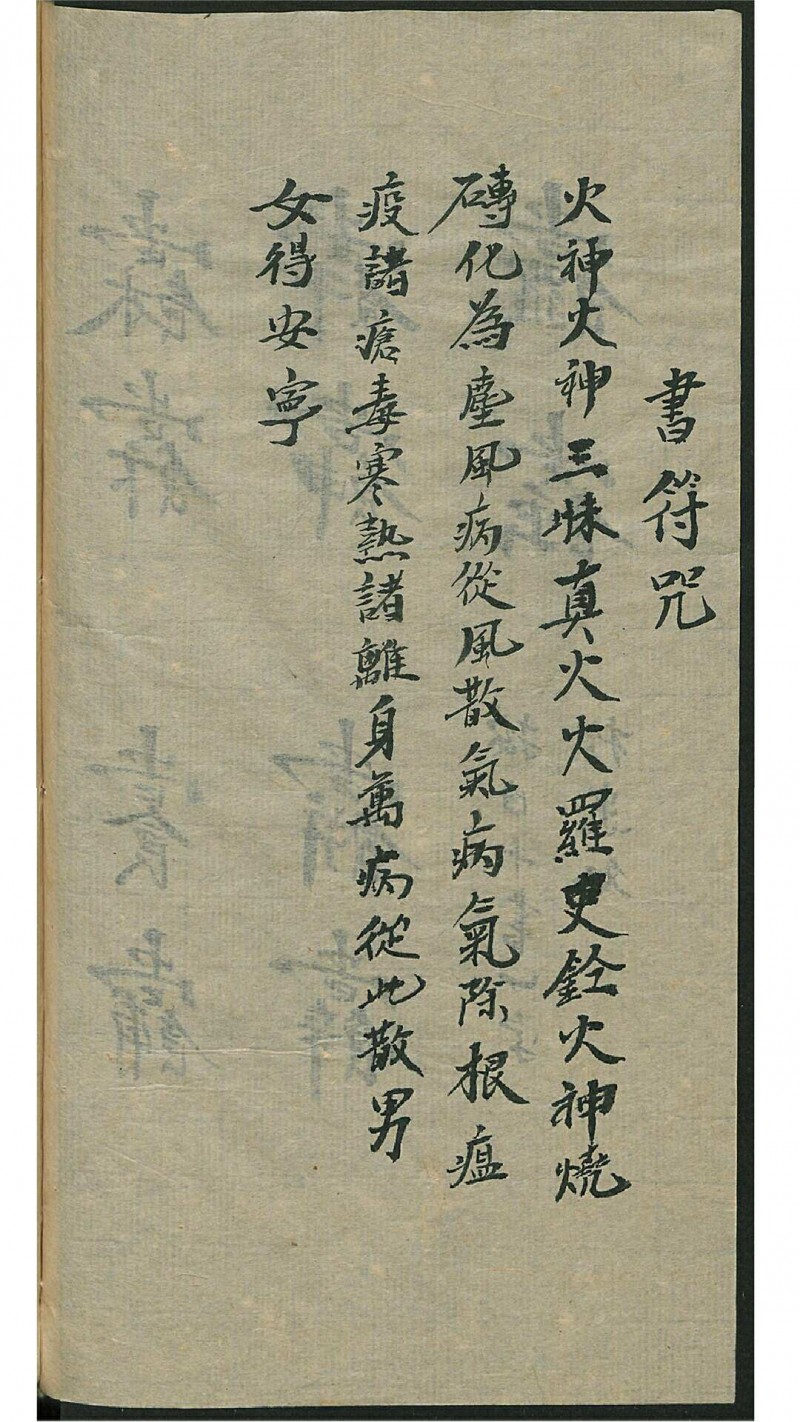 書符咒
火神火神三昧真火火羅史銓火神燒
磚化為塵風病從風散氣病氣除根瘟
疫諸瘡毒寒熱諸離身萬病從此散男
女得安寧